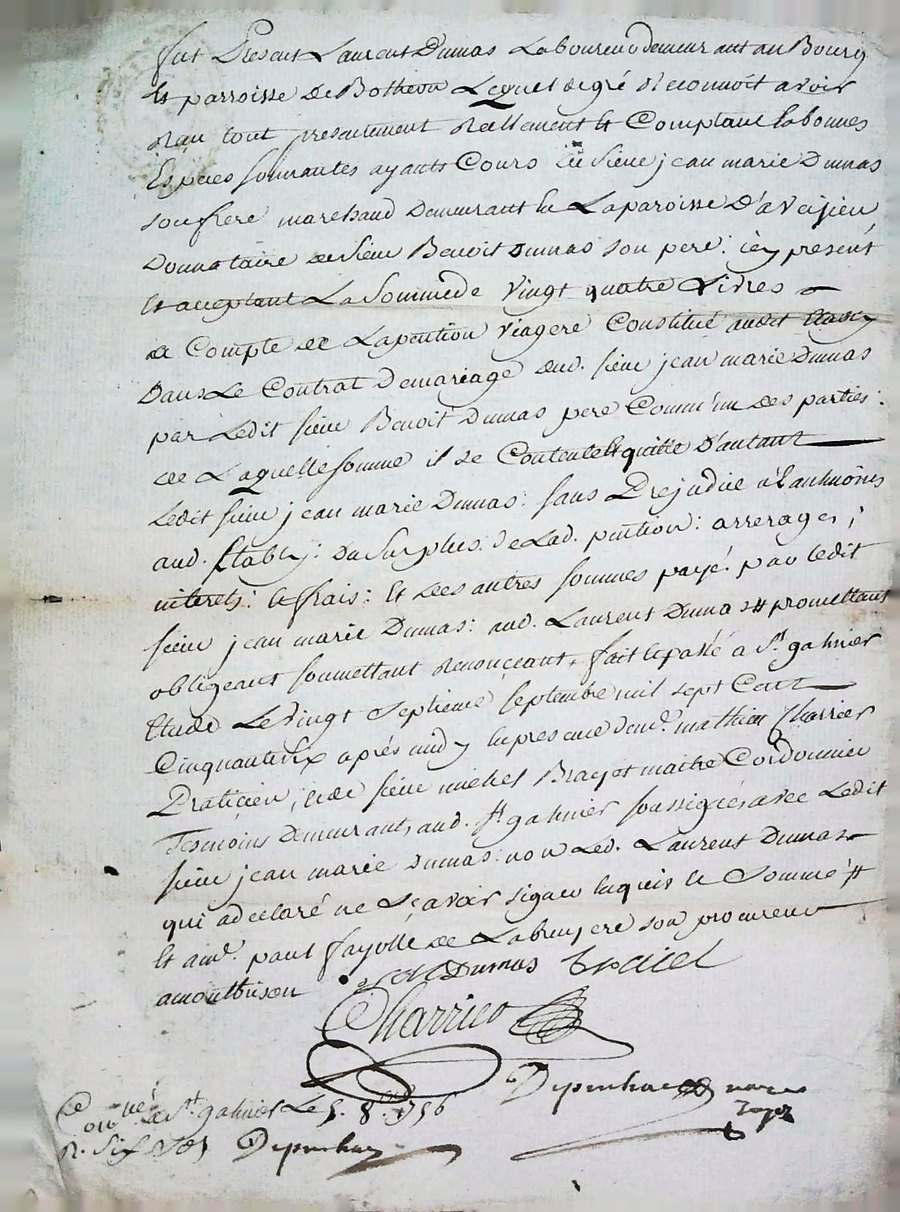 fut Present Laurent Dumas Laboureur demeurant au Bourg
Et parroisse de Botheon Lequel de gré Reconnoit avoir
Reçu tout presentement Reellement Et Comptant En bonnes
Espéces sonnantes ayants Cours du sieur jean marie Dumas
son frere marchand Demeurant En La paroisse D'aveisieu
Donnataire de sieur Benoit Dumas son pere : icy present
Et acceptant La Somme de vingt quatre Livres
a Compte de La pention viagere Constitué audit Etably
Dans Le Contrat De mariage dud. sieur jean marie Dumas
par Ledit sieur Benoit Dumas pere Commun des parties :
de Laquelle somme il se Contente Et quitte D'autant
Ledit sieur jean marie Dumas : sans Prejudice
aud. Etably : Du Surplus de Lad. pention : arrerages ;
interets : Et frais : Et Des autres sommes payé par Ledit
sieur jean marie Dumas : aud. Laurent Dumas # promettant
obligeant soumettant Renonçeant, fait Et passé a St galmier
Etude Le vingt Septieme Septembre mil sept Cent
Cinquante six aprés midy En presence de mr. mathieu Charrier
Praticien ; Et de sieur michel maitre Cordonnier
Tesmoins Demeurants aud. St galmier soussignés avec Ledit
sieur jean marie Dumas : non Led. Laurent Dumas
qui a declaré ne Sçavoir signer Enquis Et Sommé #
Et a mr. paul fayolle de Labruyere son procureur
a montbrison
Dumas
Charrier
Depenhac
Cone né a St galmier Le 5. 8bre 1756
R. Six sols Depenhac